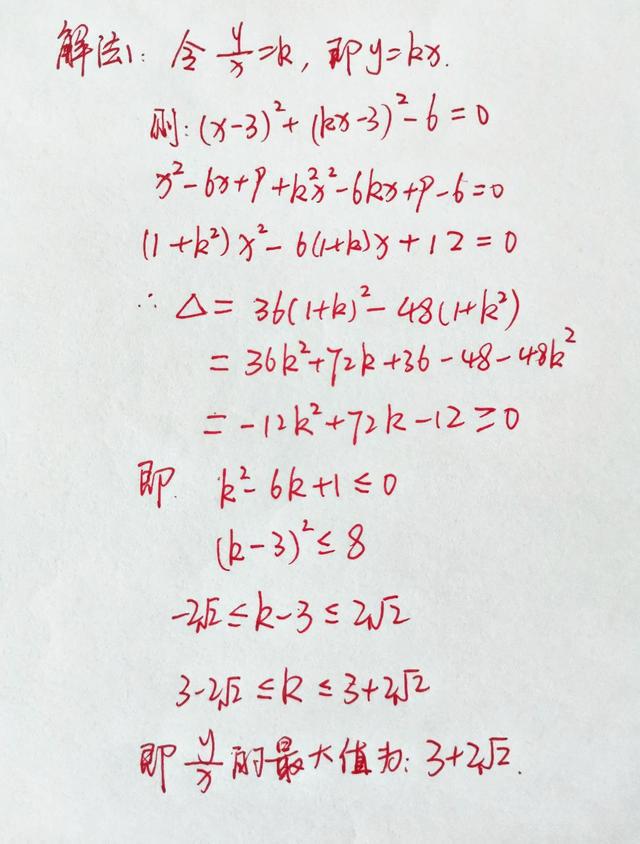 解法1: 令 y/x = k, 即 y = kx.
则: (x-3)² + (kx-3)² - 6 = 0
x² - 6x + 9 + k²x² - 6kx + 9 - 6 = 0
(1+k²)x² - 6(1+k)x + 12 = 0
∴ △ = 36(1+k)² - 48(1+k²)
= 36k² + 72k + 36 - 48 - 48k²
= -12k² + 72k - 12 ≥ 0
即 k² - 6k + 1 ≤ 0
(k-3)² ≤ 8
-2√2 ≤ k-3 ≤ 2√2
3-2√2 ≤ k ≤ 3+2√2
即 y/x 的最大值为: 3+2√2.